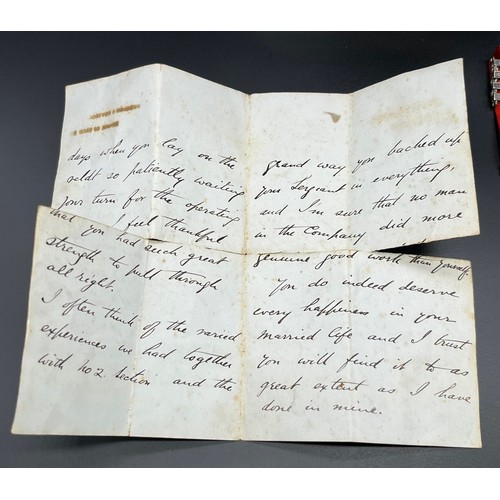 days when you lay on the
veldt so patiently waiting
your turn for the operating
I feel thankful
that you had such great
strength to pull through
all right.
I often think of the varied
experiences we had together
with No 2. Section and the
grand way you backed up
your Sergeant in everything,
and I'm sure that no man
in the Company did more
genuine good work than yourself.
You do indeed deserve
every happiness in your
married life and I trust
you will find it to as
great extent as I have
done in mine.